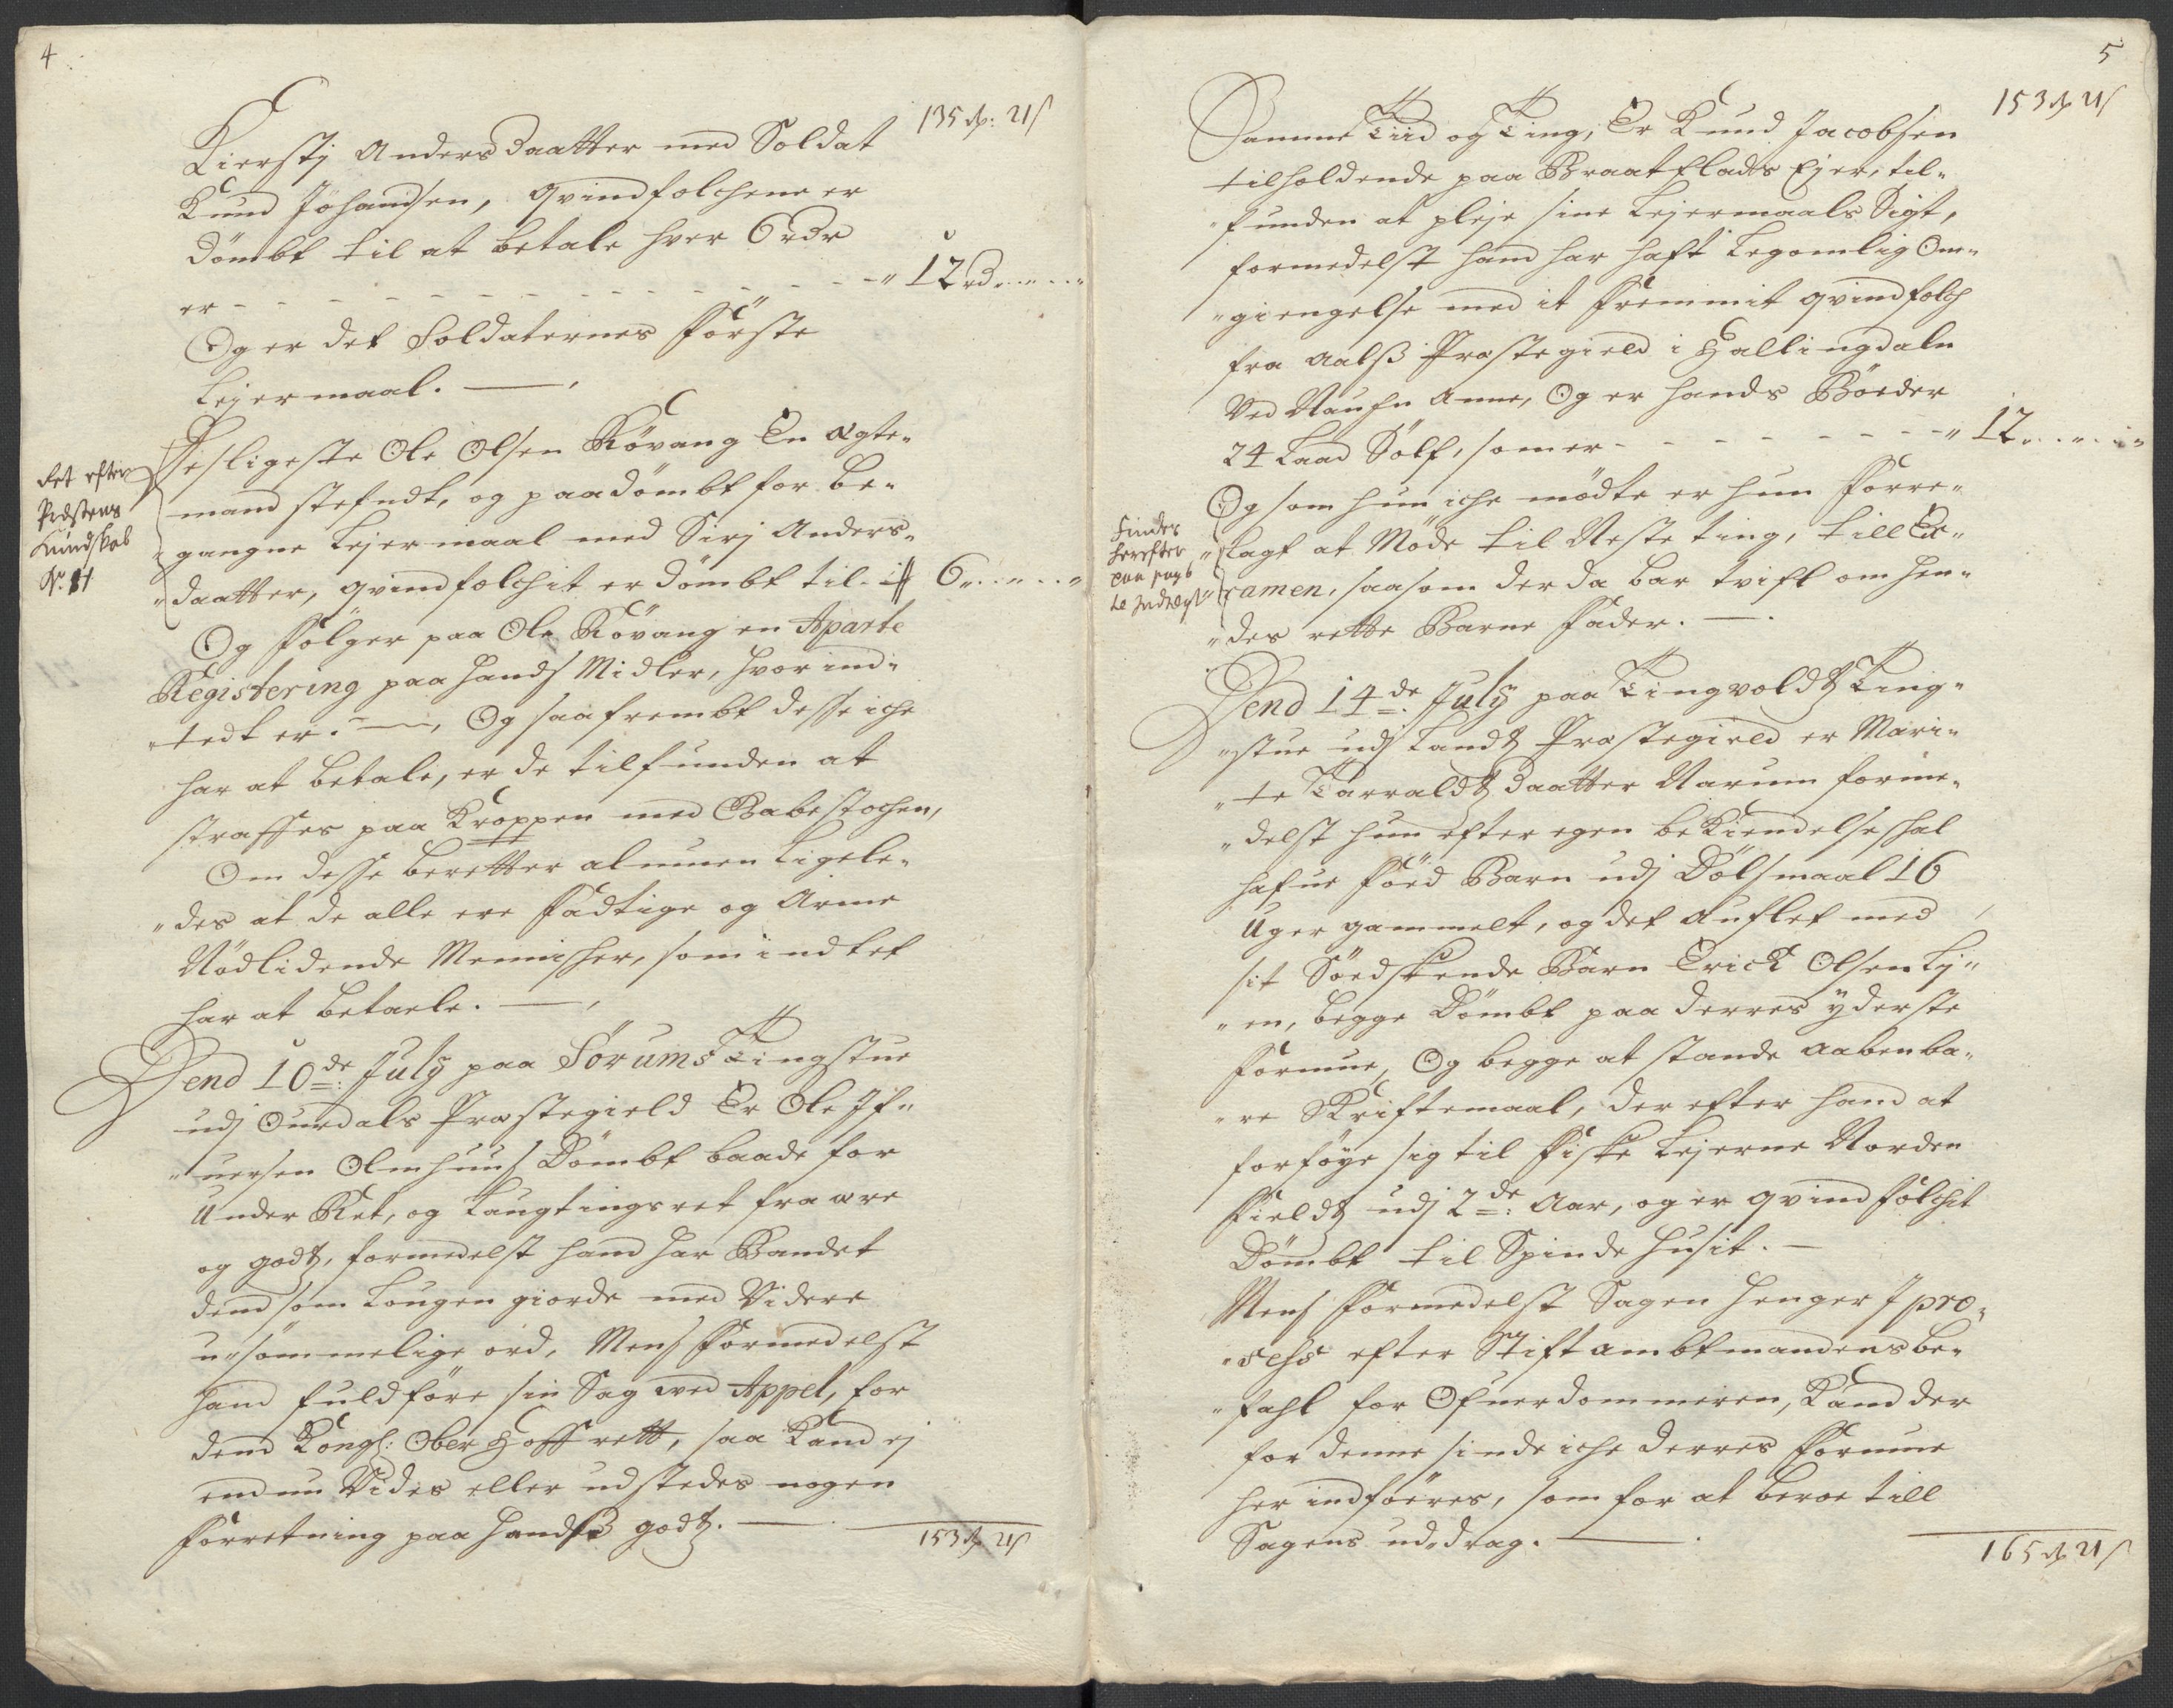 4
135 rdr: 21 s
Kierstj Andersdaatter med Soldat
Knud Johandsen, qvindfolchene er
dömbt til at betale hver 6 rdr
er - - - - - - - - - - - - - - - " 12 rd - " - "
Og er det Soldaternes Förste
Lejermaal. —
Desligeste Ole Olsen Kövang En ægte„
mand stefndt, og paadömbt for be„
„gangne Lejermaal med Sirj Anders„
„daatter, qvindfolchit er dömbt til - 6 " - " - "
det efter
Præstens
Kundskab
No. 11
Og fölger paa Ole Kövang en Aparte
Registering paa hands Midler, hvor ind„
„tedt er. — Og saafrembt desse iche
har at betale, er de tilfunden at
straffes paa Kroppen med Gabestochen,
Om desse beretter almuen ligele„
„des at de alle ere Fadtige og Arme
Nödlidende Mennischer, som indtet
har at betaele. —
Dend 10de: July paa Sörums Tingstue
udj Ourdals Præstegield Er Ole If„
„uersen Olmhuus Dömbt baade for
Under Ret, og Laugtingsret fra ære
og godtz, formedelst hand har Bandet
dend som Lougen giorde med Videre
u„sömmelige ord, Mens Formedelst
hand fuldföre sin Sag ved Appel, for
dend Kongl: Ober Hoffrett, saa Kand ej
endnu Vides eller udstedes nogen
Forretning paa handß godtz. —
153 rdr 21 s
5
153 rdr 21 s
Samme Tiid og Ting, Er Knud Jacobsen
tilholdende paa Braatflads Ejer, til„
„funden at pleje sine Lejermaals Sigt,
formedelst hand har haft Legomlig Om„
„giengelse med it Fremmit qvindfolch
fra Aalß Præstegield i Hallingdaln
Ved Naufn Anne, Og er hands Böeder
24 Laad Sölf, som er - - - - - - - - " 12 " - " - "
Og som hun iche mödte er hun Forre„
„lagt at Möde til Neste ting, till Ex„
„amen, saasom der da bar tvifl om hen„
„des rette Barne Fader. —
Findes
herefter
paa pag 6
te Indtægt
Dend 14de: July paa Tingvoldtz Ting„
„stue udj Landtz Præstegield er Mari„
„te Tarraldtz daatter Narum forme„
„delst hun efter egen bekiendelse schal
hafue föed Barn udj Dölsmaal 16
Uger gammelt, og det Auflet med
sit Söedskende Barn Erick Olsen Lj„
„en, begge Dömbt paa derres yderste
Formue, Og begge at stande aabenba„
„re Skriftemaal, der efter hand at
forföye sig til Fiske Lejerne Norden
Fieldtz udj 2de: Aar, og er qvindfolchit
Dömbt til Spinde Husit. —
Mens Formedelst Sagen henger I pro„
„cehs efter Stiftambtmandens be„
„fahl for Ofuerdommeren, Kand der
for denne sinde iche derres Formue
her indföeres, som for at beroe till
Sagens ud„drag. —
165 rdr 21 s